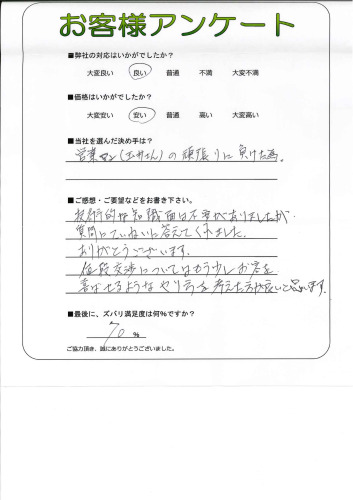 お客様アンケート
■弊社の対応はいかがでしたか?
大変良い 良い 普通 不満 大変不満
■価格はいかがでしたか?
大変安い 安い 普通 高い 大変高い
■当社を選んだ決め手は?
営業マン(玉井さん)の頑張りに負けた為。
■ご感想・ご要望などをお書き下さい。
技術的な知識面は不安がありましたが、
質問にていねいに答えてくれました。
ありがとうございます。
値段交渉についてはもう少しお客を
喜ばせるようなやり方を考えた方が良いと思います。
■最後に、ズバリ満足度は何%ですか?
70 %
ご協力頂き、誠にありがとうございました。